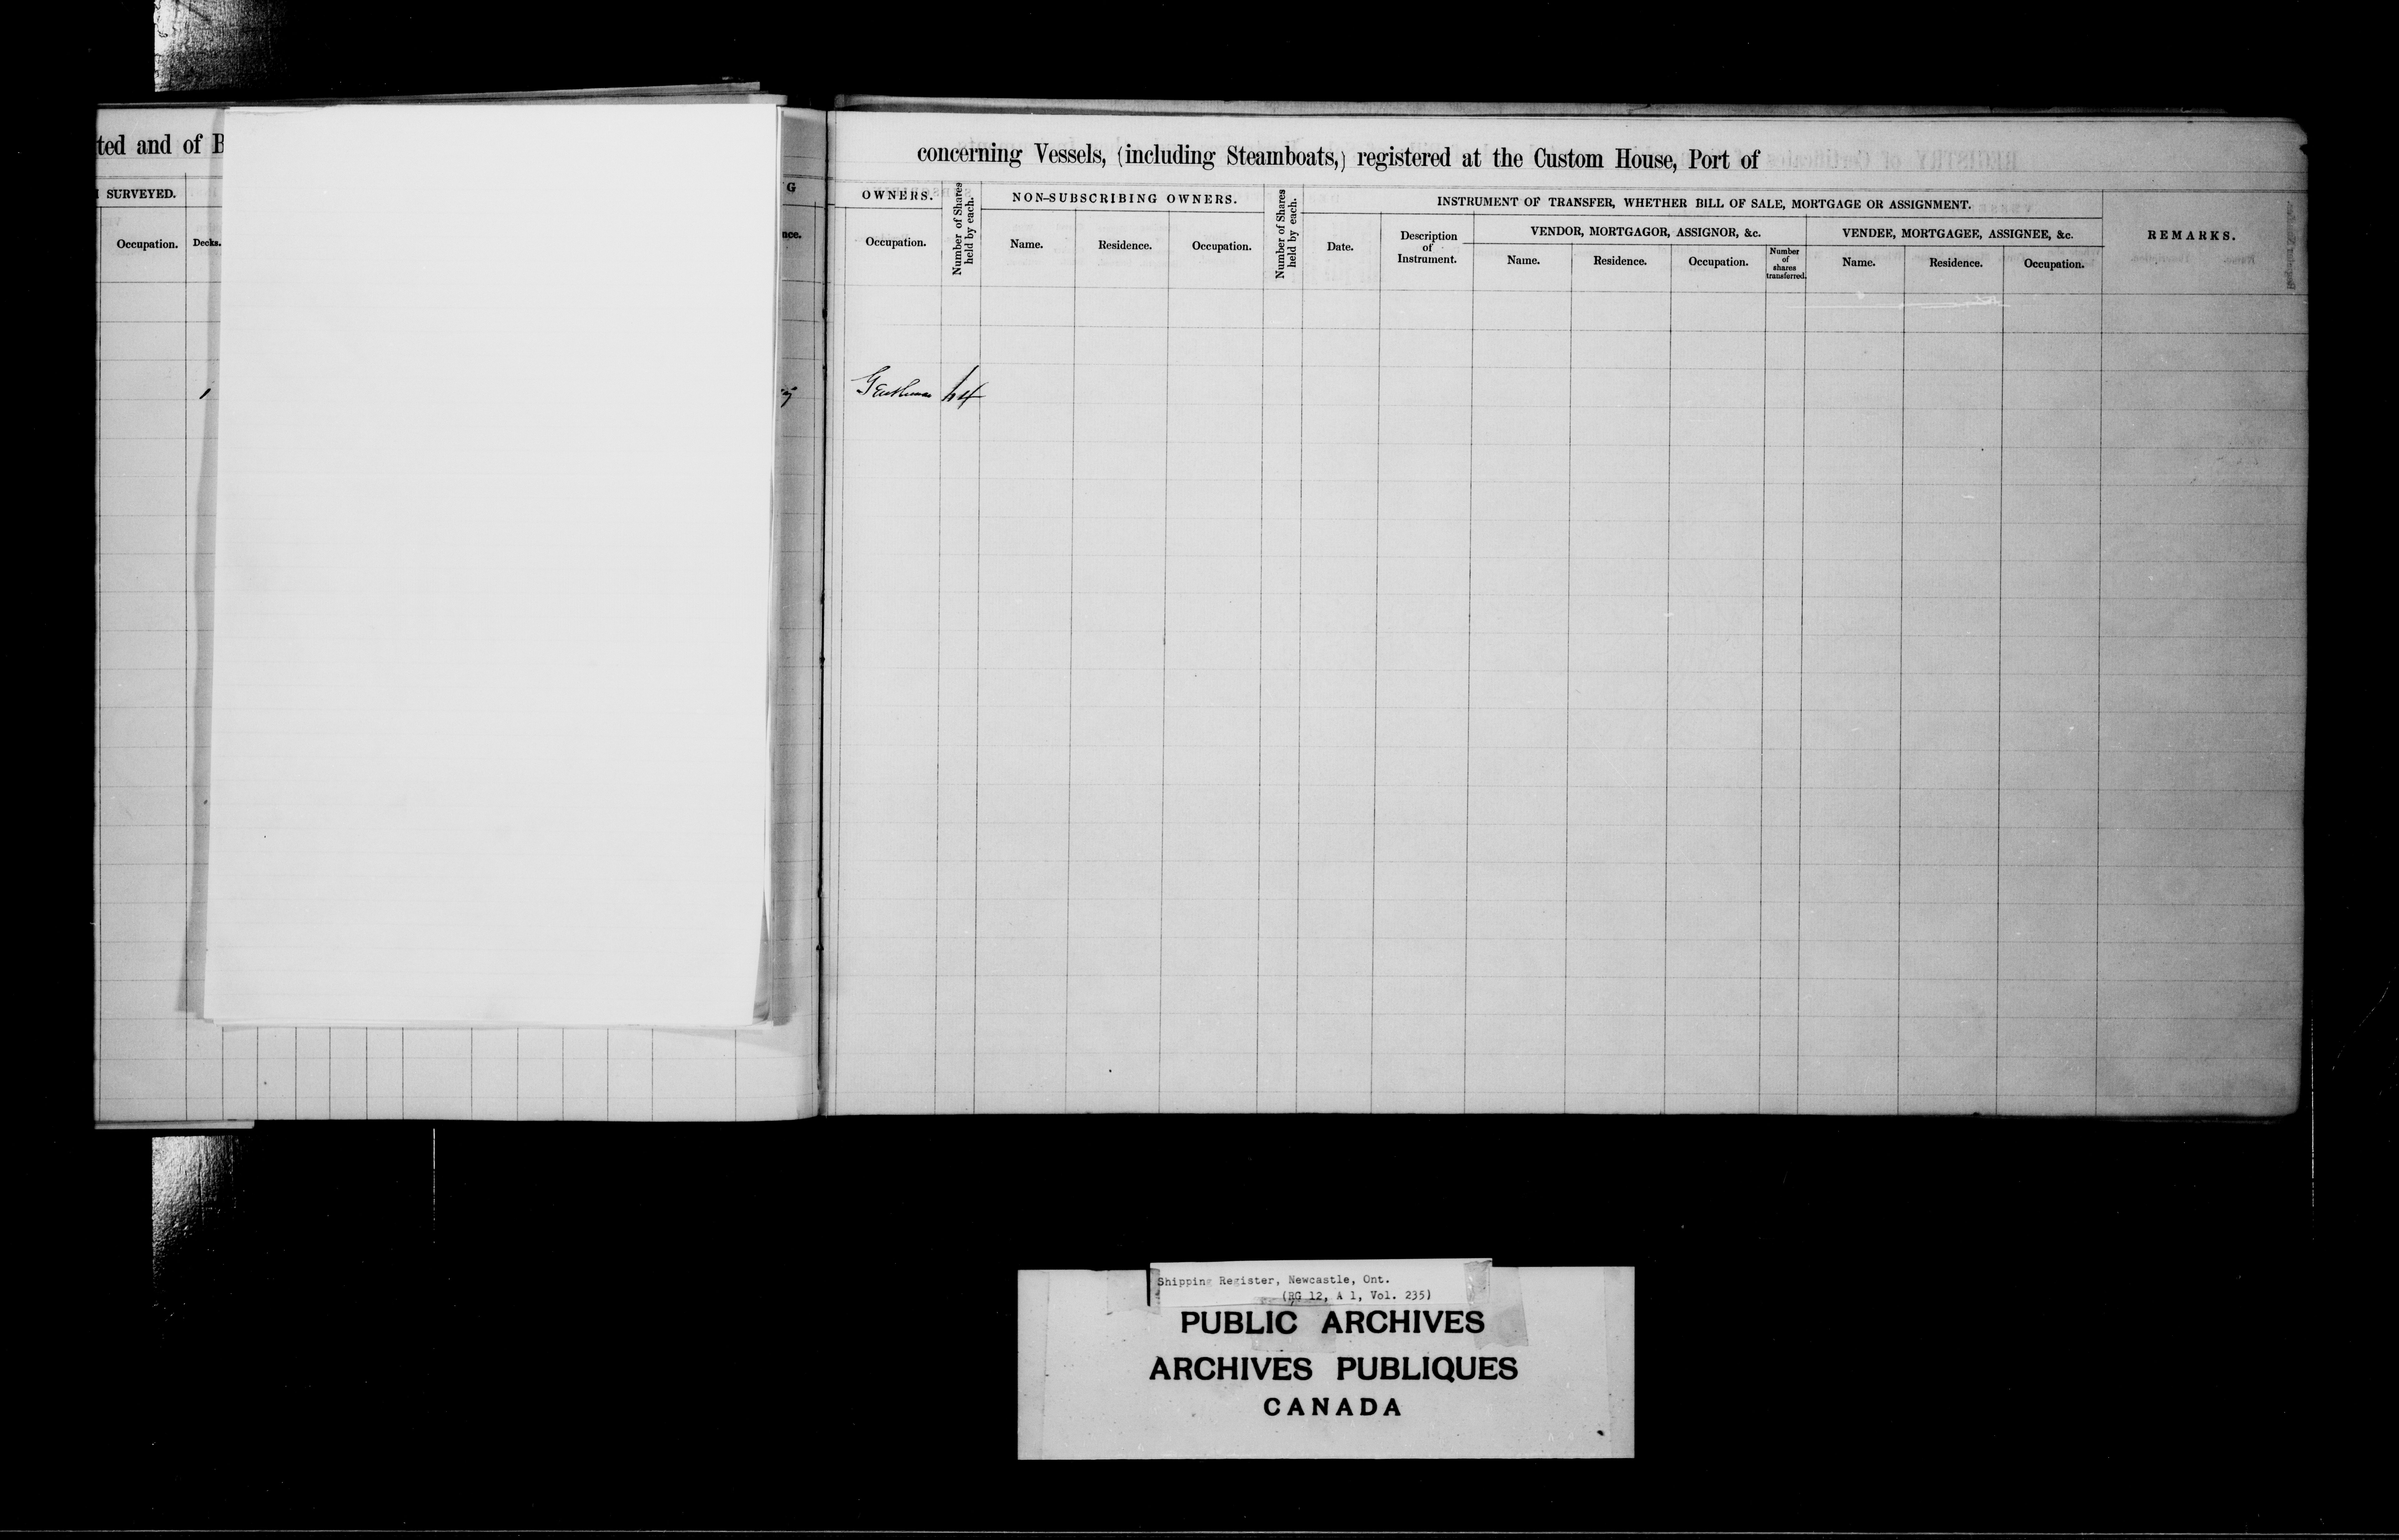 ted and of B
SURVEYED.
Occupation. Decks.
G
nce.
1
concerning Vessels, (including Steamboats,) registered at the Custom House, Port of
OWNERS.
Occupation.
Number of Shares held by each.
NON-SUBSCRIBING OWNERS.
Name. Residence. Occupation.
Number of Shares held by each.
INSTRUMENT OF TRANSFER, WHETHER BILL OF SALE, MORTGAGE OR ASSIGNMENT.
Date.
Description
of
Instrument.
VENDOR, MORTGAGOR, ASSIGNOR, &c.
Name. Residence. Occupation.
Number
of
shares
transferred.
VENDEE, MORTGAGEE, ASSIGNEE, &c.
Name. Residence. Occupation.
REMARKS.
Gentleman 64
Shipping Register, Newcastle, Ont.
(RG 12, A 1, Vol. 235)
PUBLIC ARCHIVES
ARCHIVES PUBLIQUES
CANADA